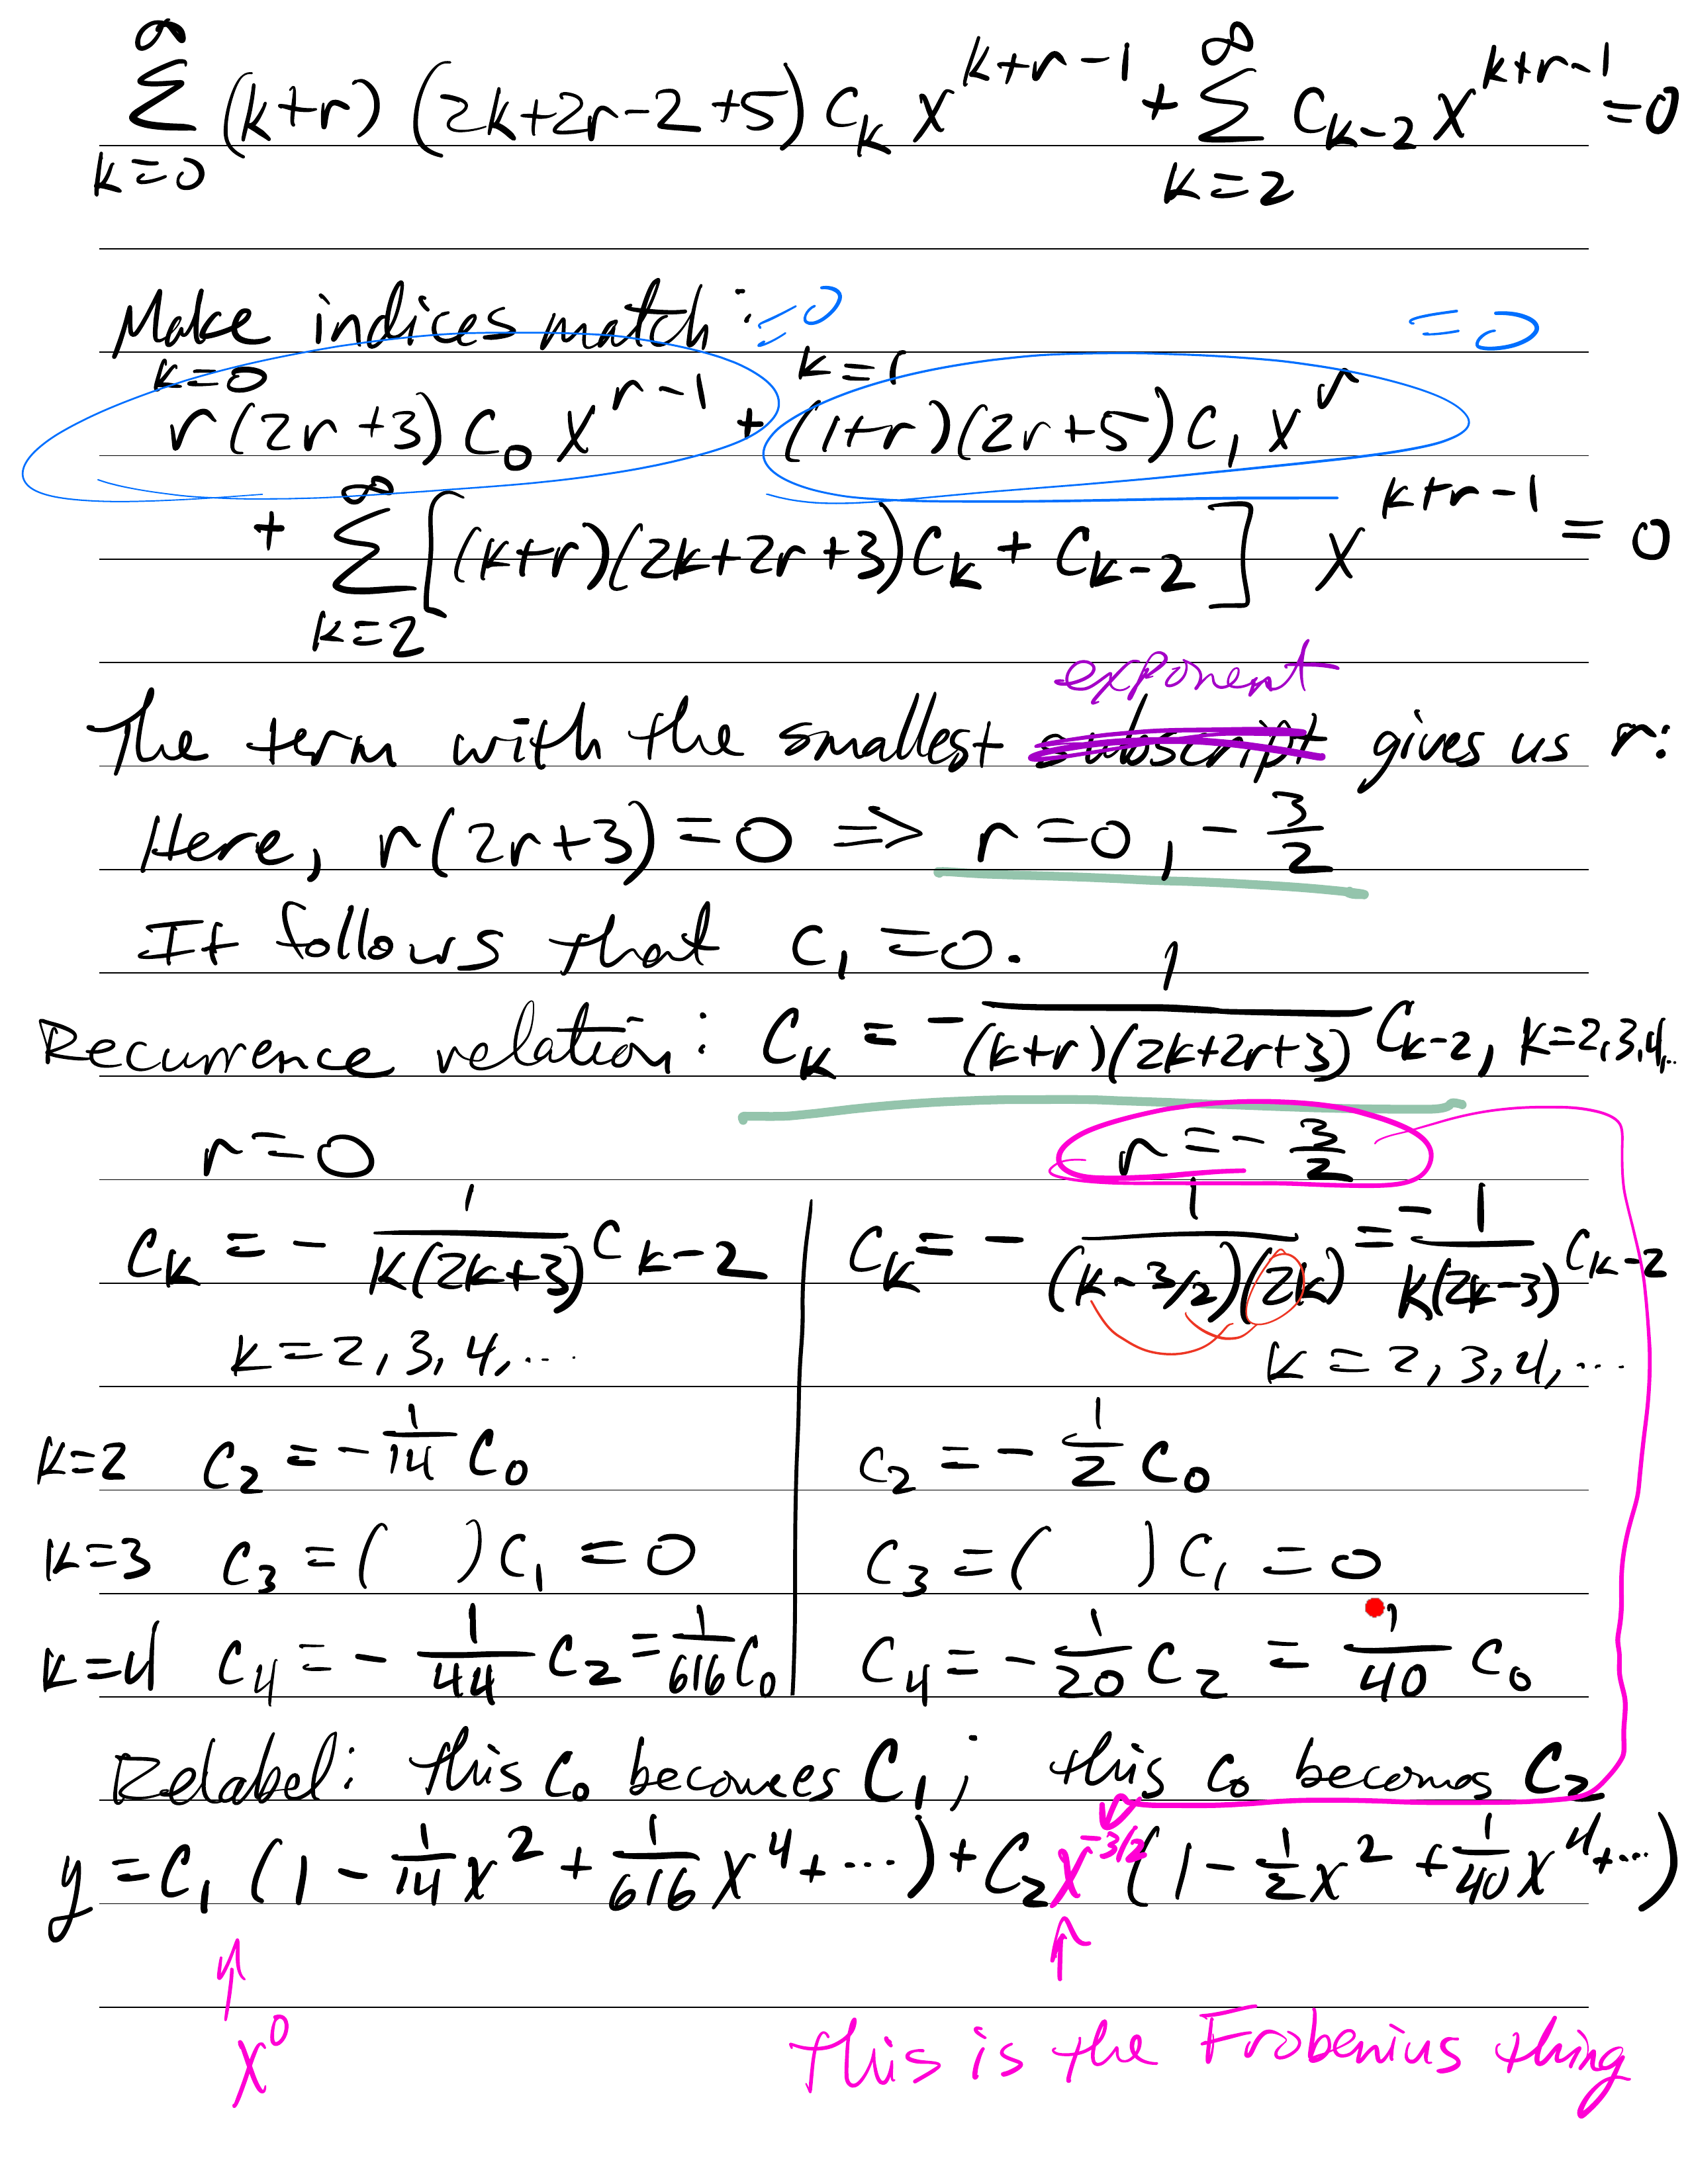 ∑_{k=0}^{∞} (k+r)(2k+2r-2+5) C_k x^{k+r-1} + ∑_{k=2}^{∞} C_{k-2} x^{k+r-1} = 0
Make indices match: =0 =0
k=0 k=1
r(2r+3) C_0 x^{r-1} + (1+r)(2r+5) C_1 x^r
+ ∑_{k=2}^{∞} [(k+r)(2k+2r+3) C_k + C_{k-2}] x^{k+r-1} = 0
exponent
The term with the smallest ~~subscript~~ gives us r:
Here, r(2r+3) = 0 ⇒ r = 0, -3/2
It follows that C_1 = 0.
Recurrence relation: C_k = - 1/((k+r)(2k+2r+3)) C_{k-2}, k=2,3,4,..
r=0 r = -3/2
C_k = - 1/(k(2k+3)) C_{k-2} C_k = - 1/((k-3/2)(2k)) = -1/(k(2k-3)) C_{k-2}
k=2,3,4,... k=2,3,4,...
k=2 C_2 = -1/14 C_0 C_2 = -1/2 C_0
k=3 C_3 = ( ) C_1 = 0 C_3 = ( ) C_1 = 0
k=4 C_4 = -1/44 C_2 = 1/616 C_0 C_4 = -1/20 C_2 = 1/40 C_0
Relabel: this C_0 becomes C_1; this C_0 becomes C_2
y = C_1 (1 - 1/14 x^2 + 1/616 x^4 + ...) + C_2 x^{-3/2} (1 - 1/2 x^2 + 1/40 x^4 + ...)
x^0 This is the Frobenius thing